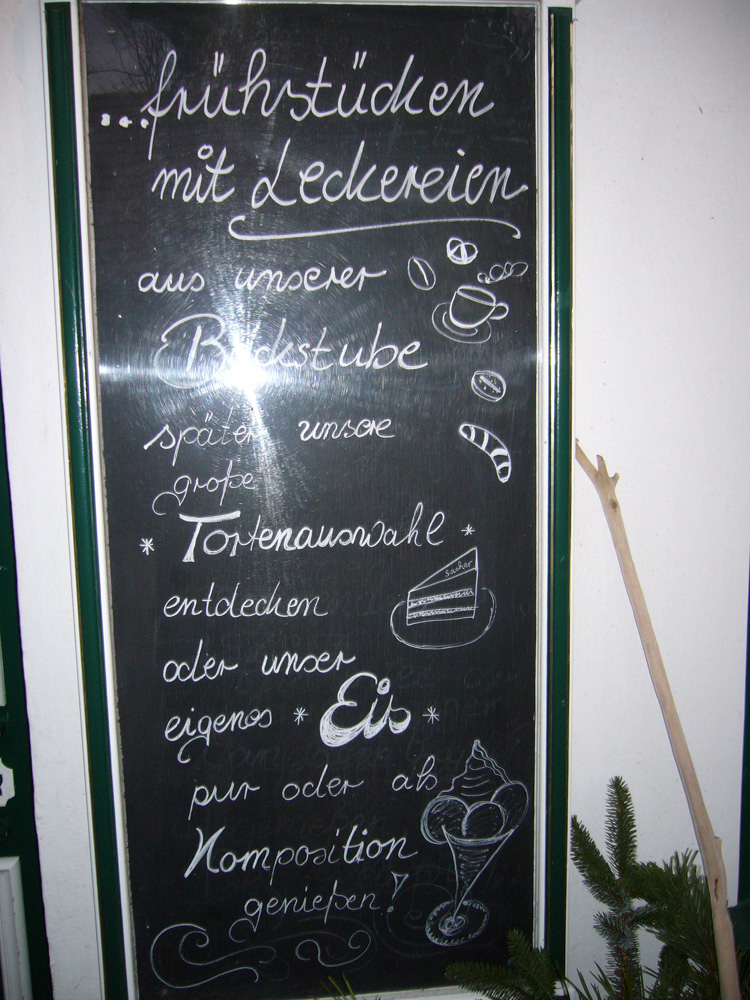 ...frühstücken
mit Leckereien
aus unserer
Backstube
später unsere
große
* Tortenauswahl *
entdecken
sacher
oder unser
eigenes * Eis *
pur oder als
Komposition
genießen!